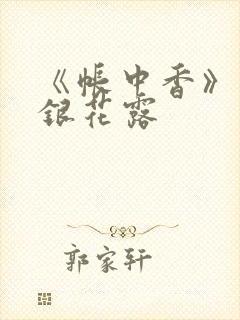 《帐中香》
銀花露
郭家轩